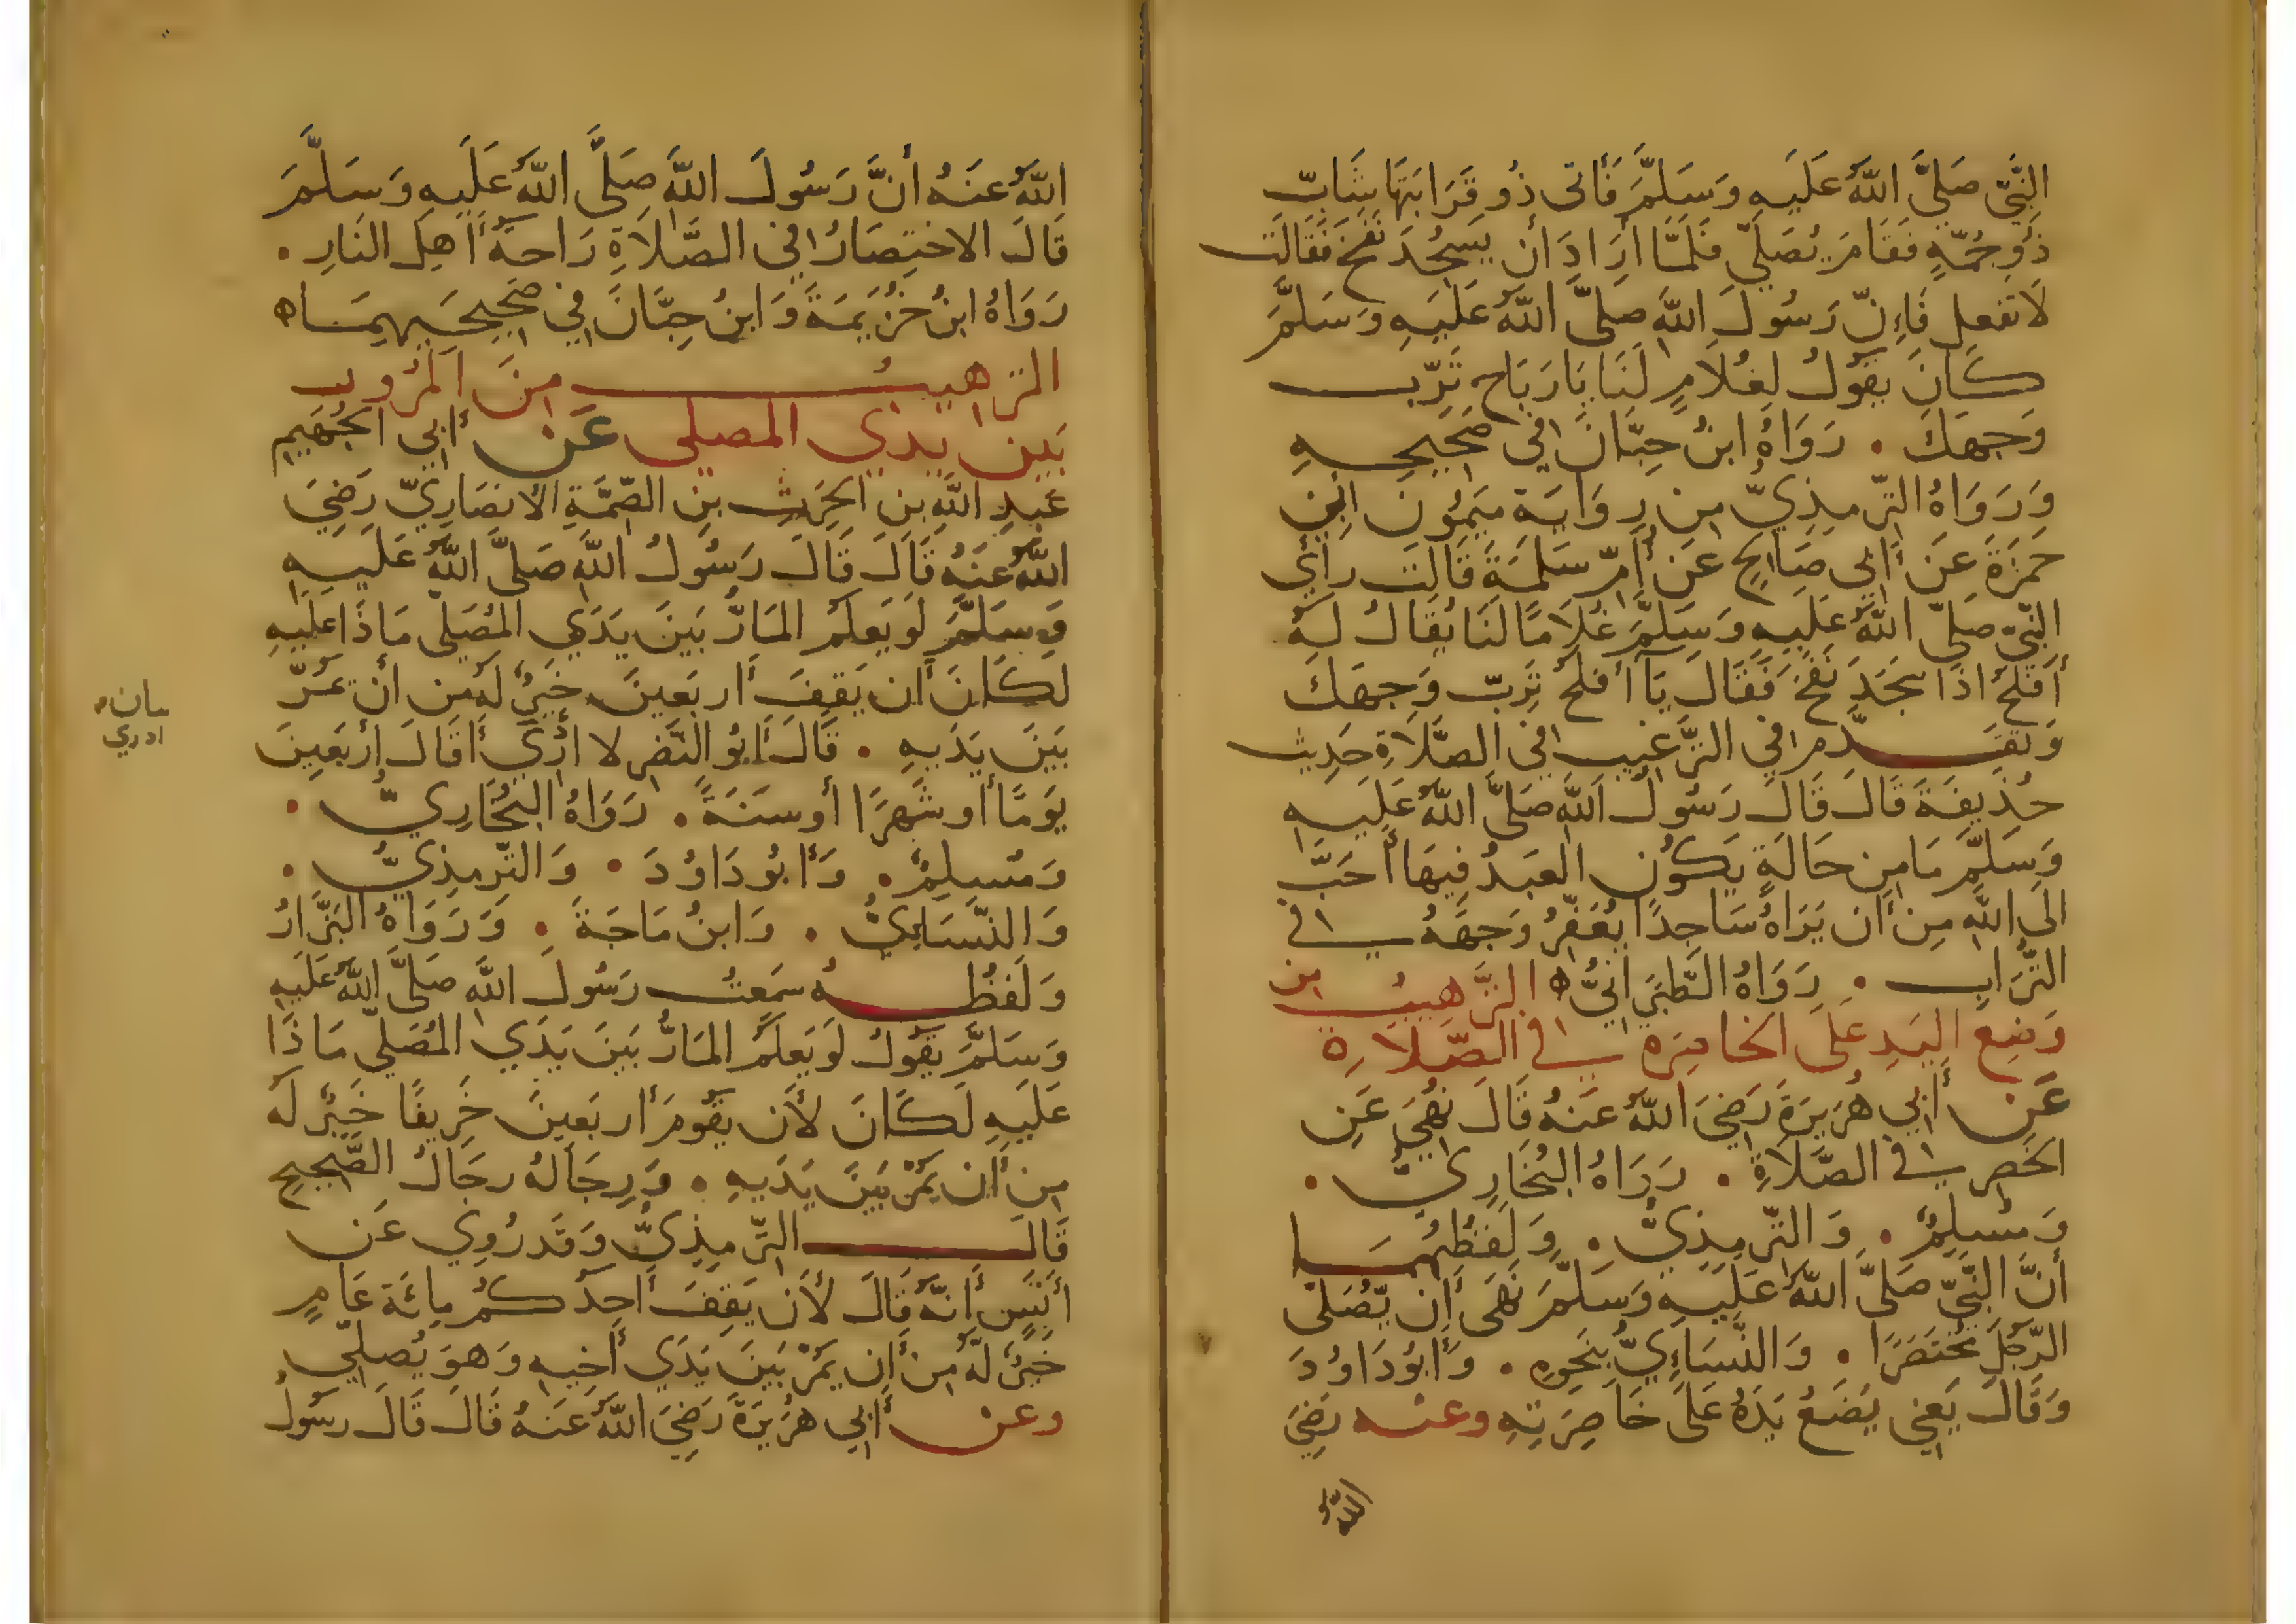 النَّبِيِّ صَلَّى اللَّهُ عَلَيهِ وَسَلَّمَ فَأَتى ذُو قَرَابَتِهَا شَابّ
ذُو جُمَّةٍ فَقَامَ يُصَلِّي فَلَمَّا أَرَادَ أَن يَسجُدَ نَفَخَ فَقَالَت
لَا تَفعَل فَإِنّ رَسُولَ اللَّهِ صَلَّى اللَّهُ عَلَيهِ وَسَلَّمَ
كَانَ يَقُولُ لِغُلَامٍ لَنَا يَا رَبَاح تَرِّب
وَجهَكَ . رَوَاهُ ابنُ حِبَّانَ في صَحِيحِهِ
وَرَوَاهُ التِّرمِذِيّ مِن رِوَايَة مَيمُونَ أَبِي
حَمزَةَ عَن أَبِي صَالِحٍ عَن أُمِّ سَلَمَةَ قَالَت رَأَى
النَّبِيّ صَلَّى اللَّهُ عَلَيهِ وَسَلَّمَ غُلَامًا لَنَا يُقَالُ لَهُ
أَفلَحُ اذَا سَجَدَ نَفَخَ فَقَالَ يَا أَفلَحُ تَرِّب وَجهَكَ
وَتَقَدَّم في التَّرغِيب في الصَّلَاةِ حَدِيث
حُذَيفَةَ قَالَ قَالَ رَسُولُ اللَّهِ صَلَّى اللَّهُ عَلَيهِ
وَسَلَّمَ مَا مِن حَالَةٍ يَكُون العَبدُ فِيهَا أَحَبَّ
الَى اللَّهِ مِن أَن يَرَاهُ سَاجِدًا يُعَفِّرُ وَجهَهُ في
التُّرَابِ . رَوَاهُ الطَّبَرَانيُّ ه التَّرهِيبُ من
وَضعِ اليَدِ عَلَى الخَاصِرَة في الصَّلَاةِ
عَن أَبِي هُرَيرَةَ رَضِيَ اللَّهُ عَنهُ قَالَ نُهِيَ عَنِ
الخَصرِ في الصَّلَاةِ . رَوَاهُ البُخَارِيّ .
وَمُسلِمٌ . وَالتِّرمِذِيُّ . وَلَفظُهُمَا
أَنَّ النَّبِيّ صَلَّى اللَّهُ عَلَيهِ وَسَلَّمَ نَهَى أَن يُصَلّى
الرَّجُل مُختَصَرًا . وَالنَّسَاءِيّ بِنَحوِهِ . وَأَبُو دَاوُدَ
وَقَالَ يَعنِي يَضَعُ يَدَهُ عَلَى خَاصِرَتِهِ وعنه رَضِيَ
اللَّهُ
اللَّهُ عَنهُ أَنَّ رَسُولَ اللَّهِ صَلَّى اللَّهُ عَلَيهِ وَسَلَّمَ
قَالَ الاختِصَارُ في الصَّلَاةِ رَاحَةُ أَهلِ النَارِ .
رَوَاهُ ابنُ خُزَيمَةَ وَابنُ حِبَّانَ في صَحِيحَيهِمَا ه
الترهيبُ مِنَ المُرُور
بَين يَدَي المصلى عَن أَبِي الجُهَيمِ
عَبدِ اللَّهِ بنِ الحَرِث بنِ الصِّمَّةِ الأَنصَارِيّ رَضِيَ
اللَّهُ عَنهُ قَالَ قَالَ رَسُولُ اللَّهِ صَلَّى اللَّهُ عَلَيهِ
وَسَلَّمَ لَو يَعلَمُ المَارُّ بَينَ يَدَيِ المُصَلّى مَاذَا عَلَيهِ
لَكَانَ أَن يَقِفَ أَربَعِينَ خَيرٌ لَهُ مِن أَن يَمُرّ
بَينَ يَدَيهِ . قَالَ أَبُو النَّضرِ لا أَدرِي أَقَالَ أَربَعِينَ
يَومًا أَو شَهرًا أَو سَنَةً . رَوَاهُ البُخَارِيُّ .
وَمُسلِمٌ . وَأَبُو دَاوُدَ . وَالتِّرمِذِيُّ .
وَالنَّسَاءِيُّ . وَابنُ مَاجَةَ . وَرَوَاهُ البَزَّارُ
وَلَفظُهُ سَمِعتُ رَسُولَ اللَّهِ صَلَّى اللَّهُ عَلَيهِ
وَسَلَّمَ يَقُولُ لَو يَعلَمُ المَارُّ بَينَ يَدَيِ المُصَلّي مَاذَا
عَلَيهِ لَكَانَ لأَن يَقُومَ أَربَعِينَ خَرِيفًا خَيرٌ لَهُ
مِن أَن يَمُرّ بَينَ يَدَيهِ . وَرِجَالُهُ رِجَالُ الصَّحِيحِ
قَالَ التِّرمِذِيُّ وَقَد رُوِي عَن
أَنَسٍ أَنَّهُ قَالَ لأَن يَقِفَ أَحَدُكُم مِائَة عَامٍ
خَيرٌ لَهُ مِن أَن يَمُرّ بَينَ يَدَي أَخِيهِ وَهوَ يُصَلِّي
وعن أَبِي هُرَيرَةَ رَضِيَ اللَّهُ عَنهُ قَالَ قَالَ رَسُولُ
ادري